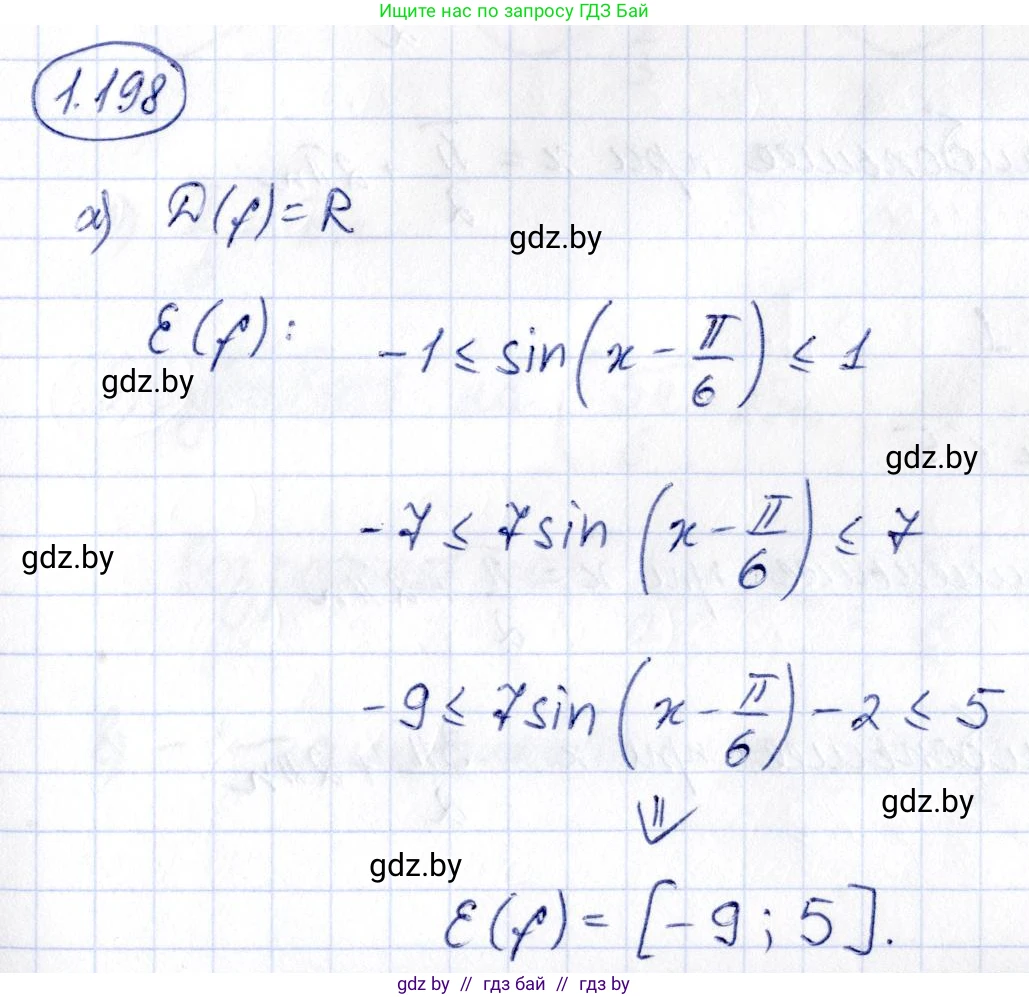 Ищите нас по запросу ГДЗ Бай
1.198
а) D(f) = R
gdz.by
E(f): -1 ≤ sin(x - π/6) ≤ 1
gdz.by
gdz.by
-7 ≤ 7sin(x - π/6) ≤ 7
gdz.by
-9 ≤ 7sin(x - π/6) - 2 ≤ 5
⇓
gdz.by
gdz.by
E(f) = [-9; 5].
gdz.by // гдз бай // gdz by